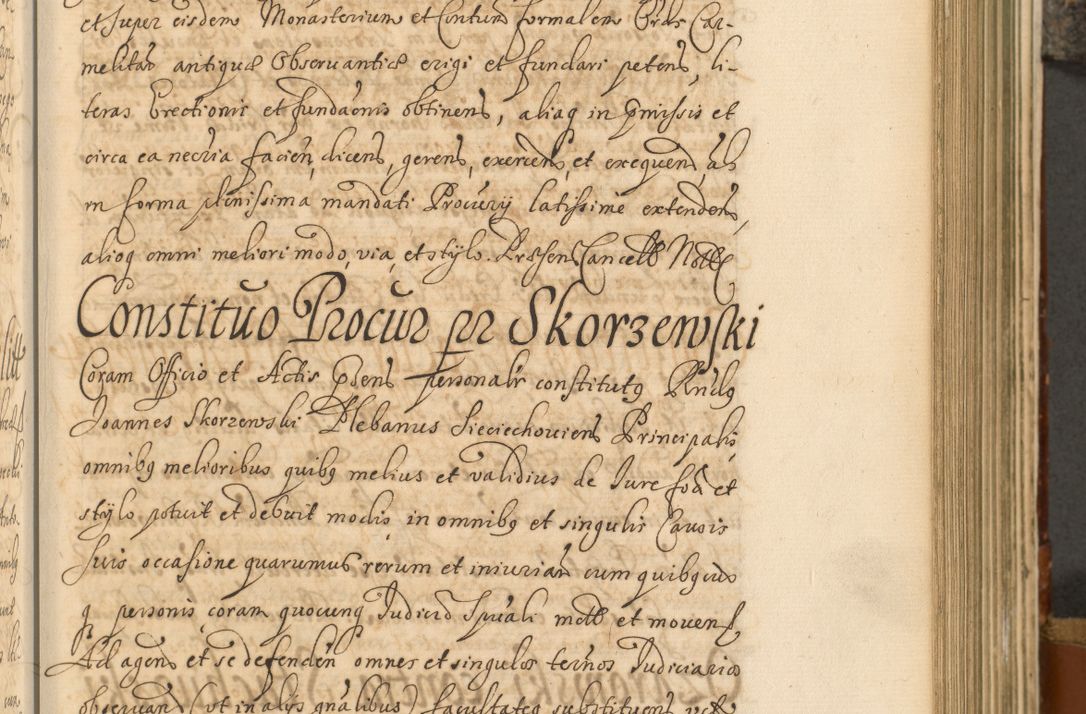 et super eisdem Monasterium et Cintum formalem Ordis Car-
melitar antiquæ Observantiæ erigi et fundari petens, li-
teras Erectionis et fundaōnis obtinens, aliaq in pmissis et
circa ea necria facien, dicens, gerens, exercens, et exequens, ab
in forma plenissima mandati Procurij latissime extendens,
alioq omni meliori modo, via, et stylo. Prssens Cancell Notte
Constituo Procur pr Skorzewski
Coram Officio et Actis pdens personalr constitutq Rndq
Joannes Skorzewski Plebanus Sieciechoviens Principalis
omnibq melioribus quibq melius et validius de Jure foā et
stylo potuit et debuit modis in omnibq et singulis Causis
suis occasione quarumvis rerum et iniuriar cum quibqcus
q personis coram quocunq Judicio Spūali motts et movens
Ad agens et se defenden omnes et singulos ternos Judiciarios
observan (ut in alijs gnalibus) facultateq substituens